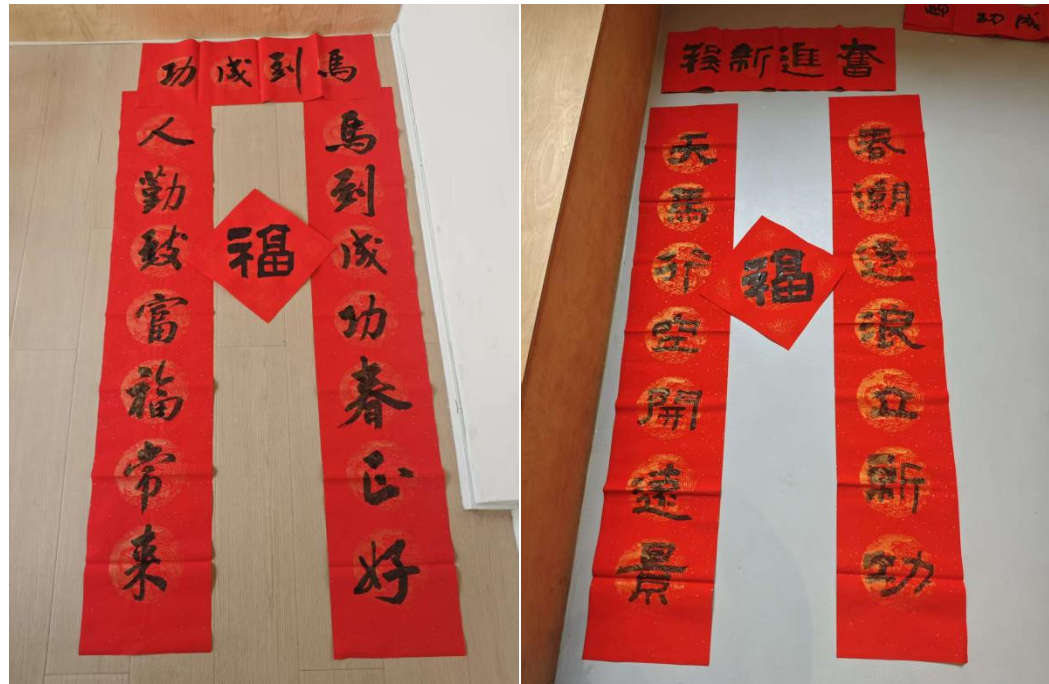 馬到成功
馬到成功春正好
人勤致富福常来
福
奮進新程
春潮逐浪立新功
天馬行空開遠景
福